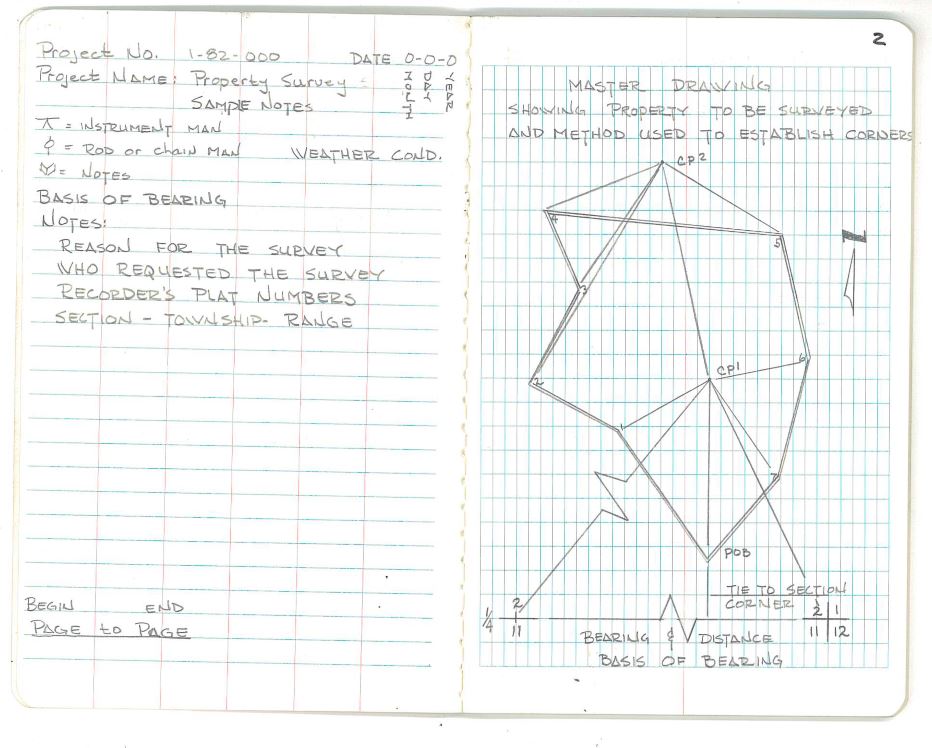 Project No. 1-82-000 DATE 0-0-0
Project Name: Property Survey
Sample Notes
MONTH
DAY
YEAR
= Instrument Man
= Rod or Chain Man Weather Cond.
= Notes
Basis of Bearing
Notes:
Reason for the Survey
Who Requested the Survey
Recorder's Plat Numbers
Section - Township - Range
Begin End
Page to Page
2
Master Drawing
Showing Property to be Surveyed
and Method Used to Establish Corners
CP2
4
5
3
6
CP1
2
1
7
POB
Tie to Section
Corner
1/4
2
11
2 1
11 12
Bearing & Distance
Basis of Bearing